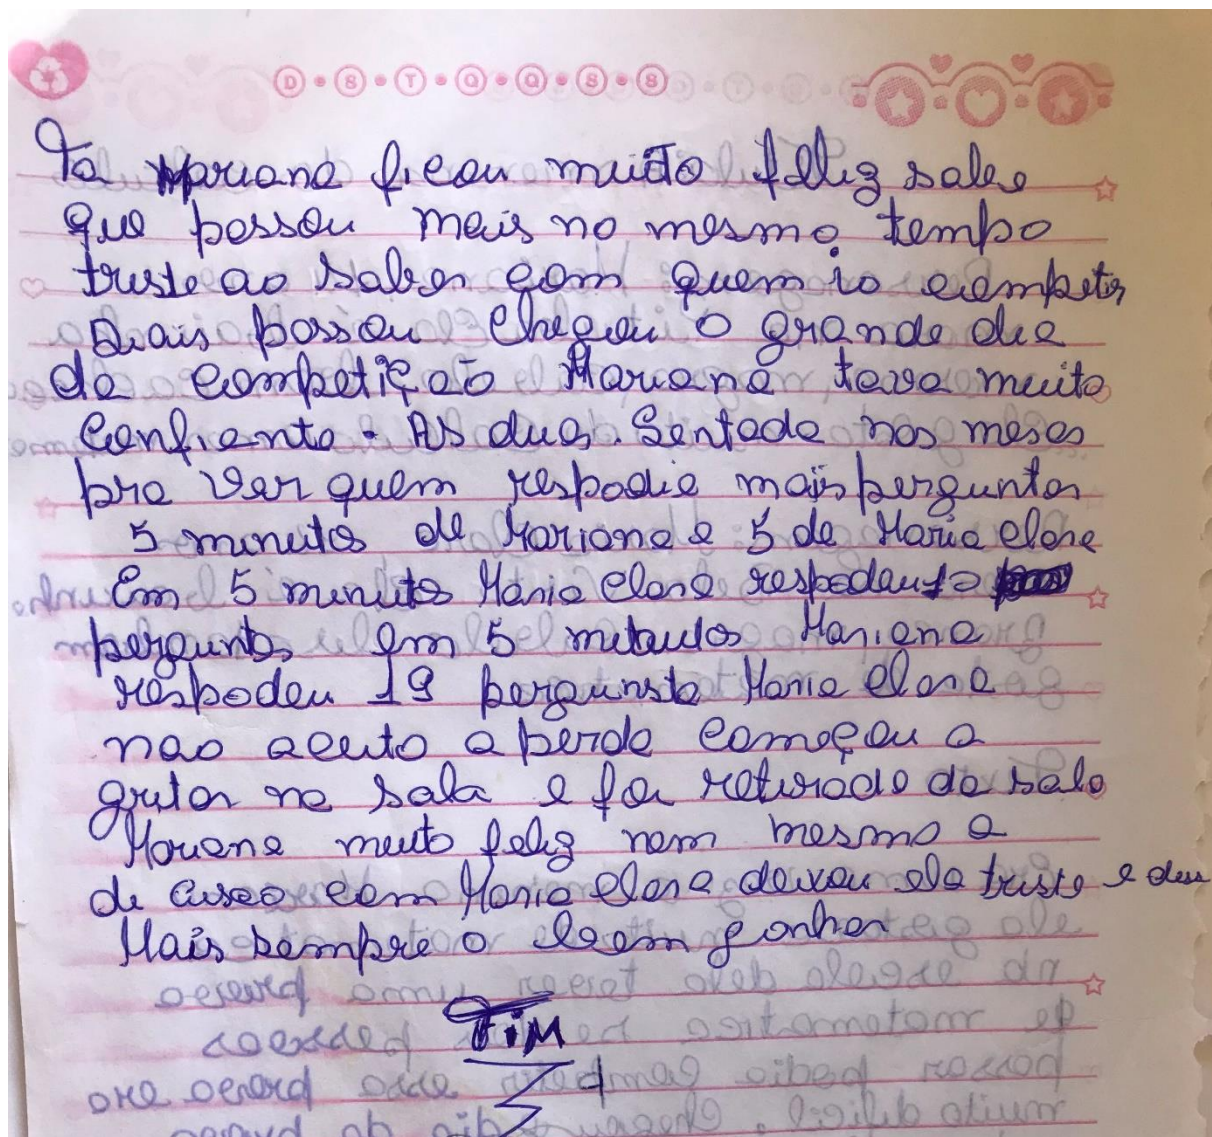 D • S • T • Q • Q • S • S
Ta Mariana ficou muito feliz sabe
que passou mais no mesmo tempo
triste ao saber com quem ia competir
Diais passou chegou o grande dia
da competição Mariana tava muito
confiante. As duas. Sentada nas mesas
pra ver quem respodia mais perguntas
5 minutos de Mariana e 5 de Maria clara
Em 5 minutos Maria clara respodeu
perguntas em 5 mitutos Mariana
respodeu 19 pergunsta Maria clara
nao aceito a perda começou a
gritar na sala e foi retirada da sala
Mariana muito feliz nem mesmo a
com Maria clara deixou ela triste e
Mais sempre o bem ganha
FiM